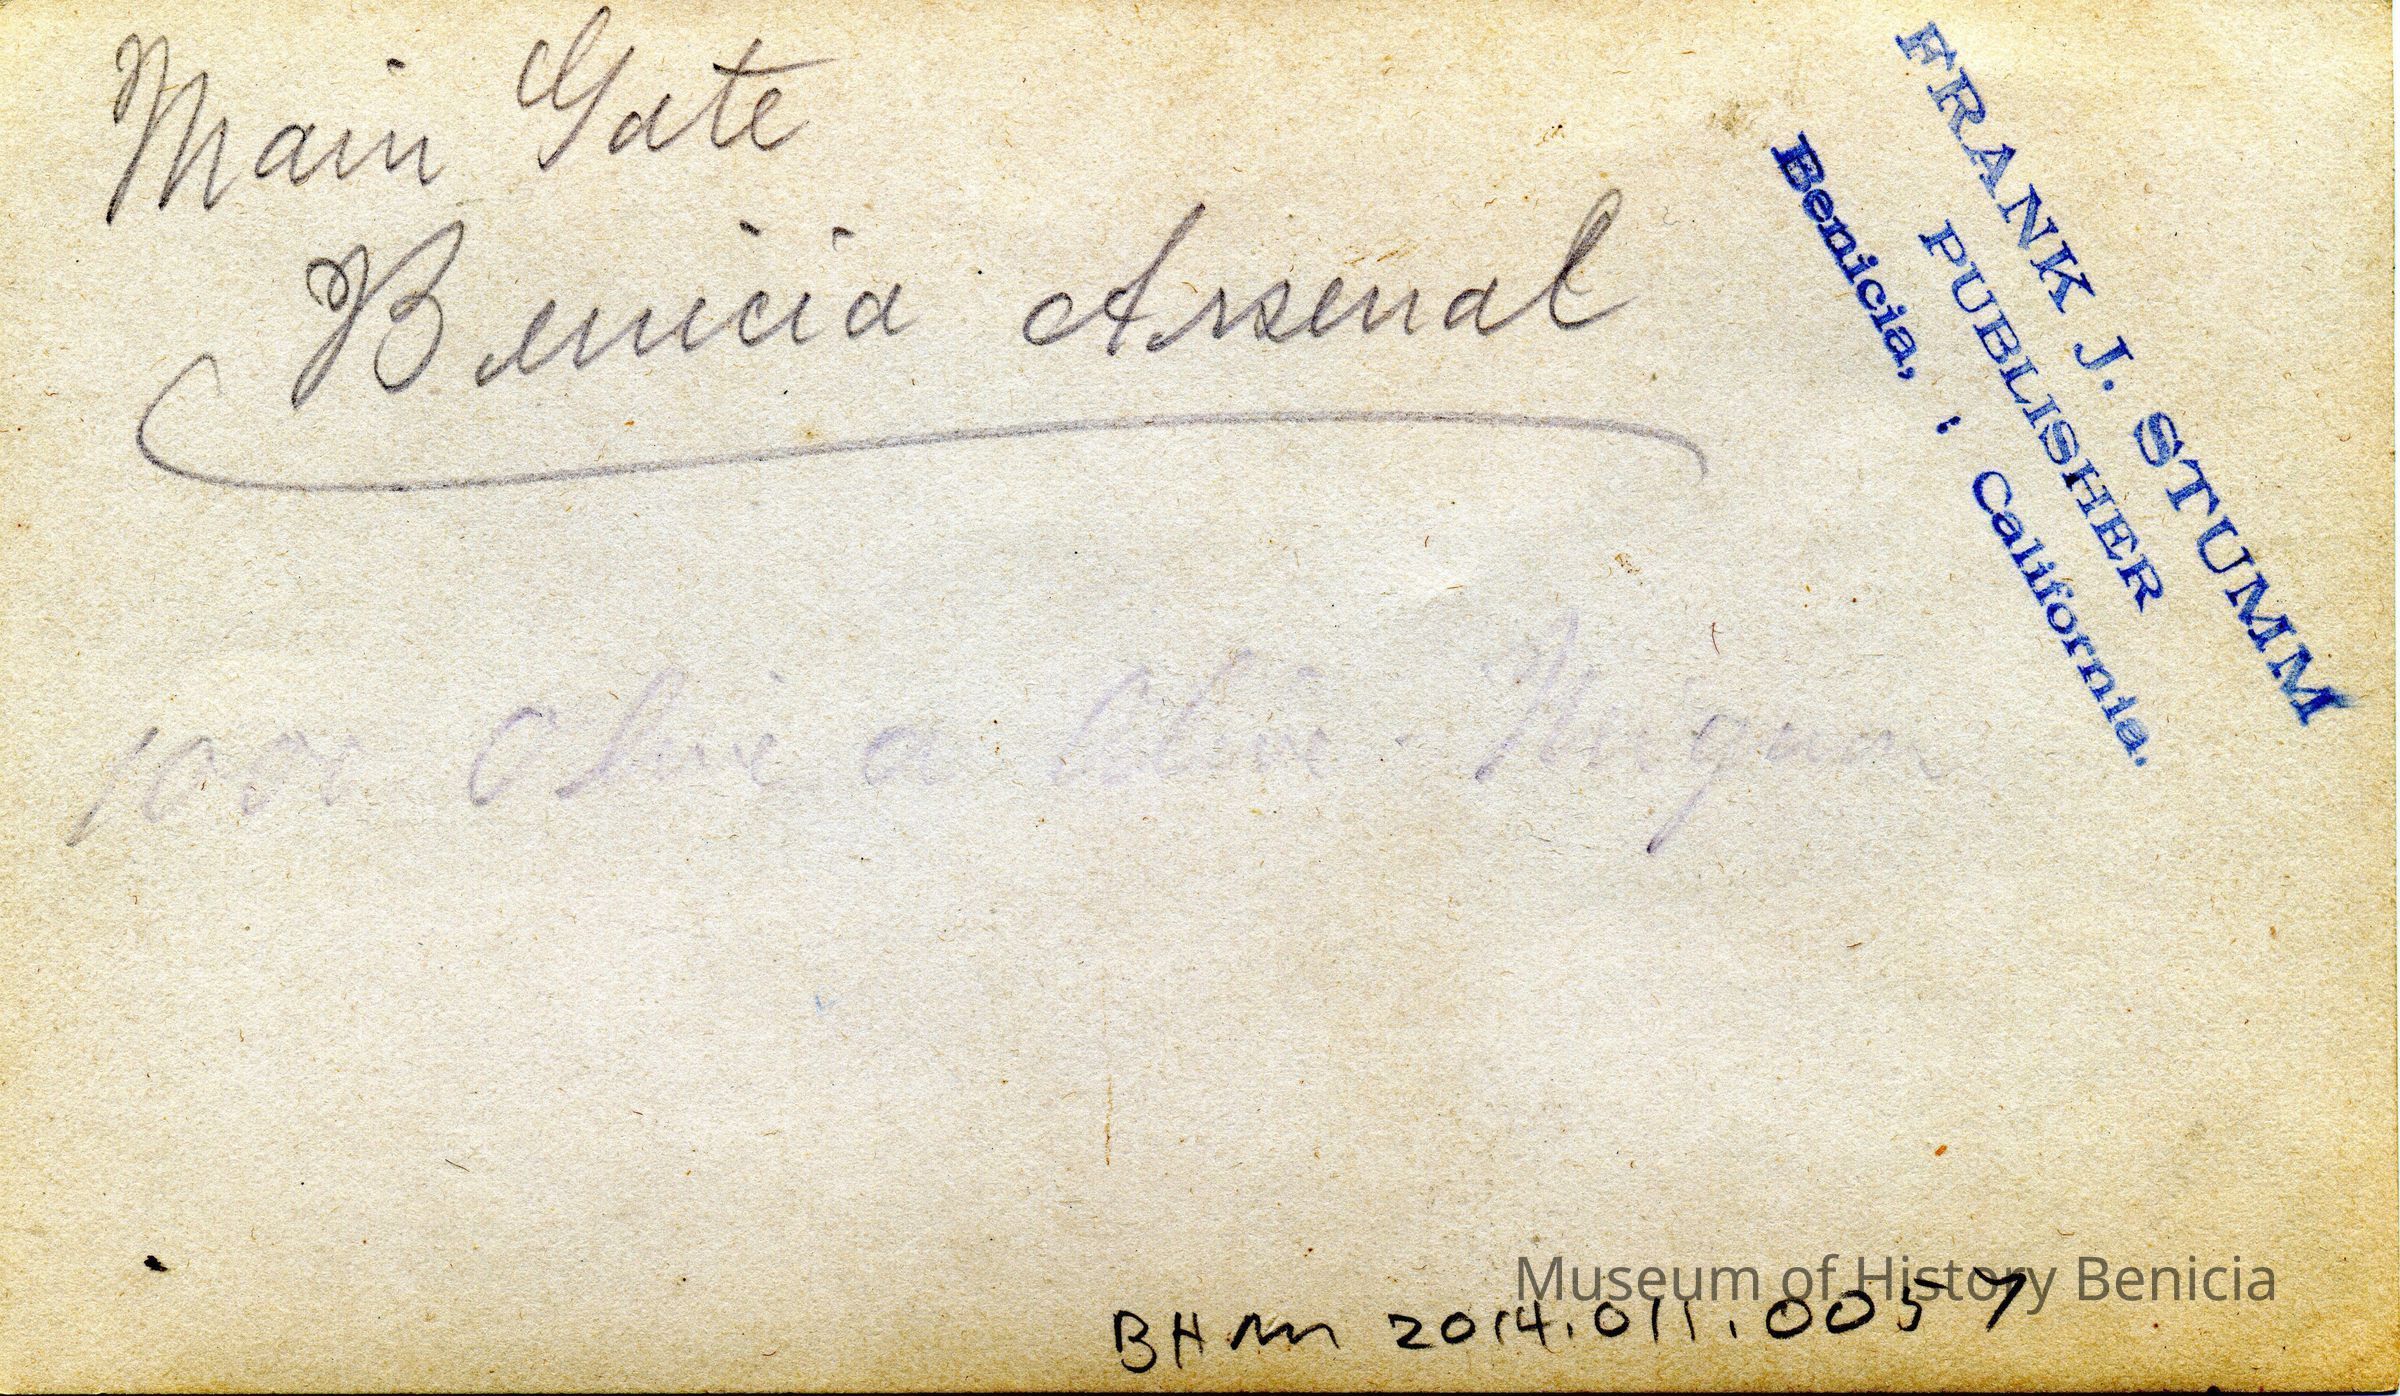 Main Gate
Benicia Arsenal
FRANK J. STUMM
PUBLISHER
Benicia, : California.
a
Museum of History Benicia
BHM 2014.011.0057